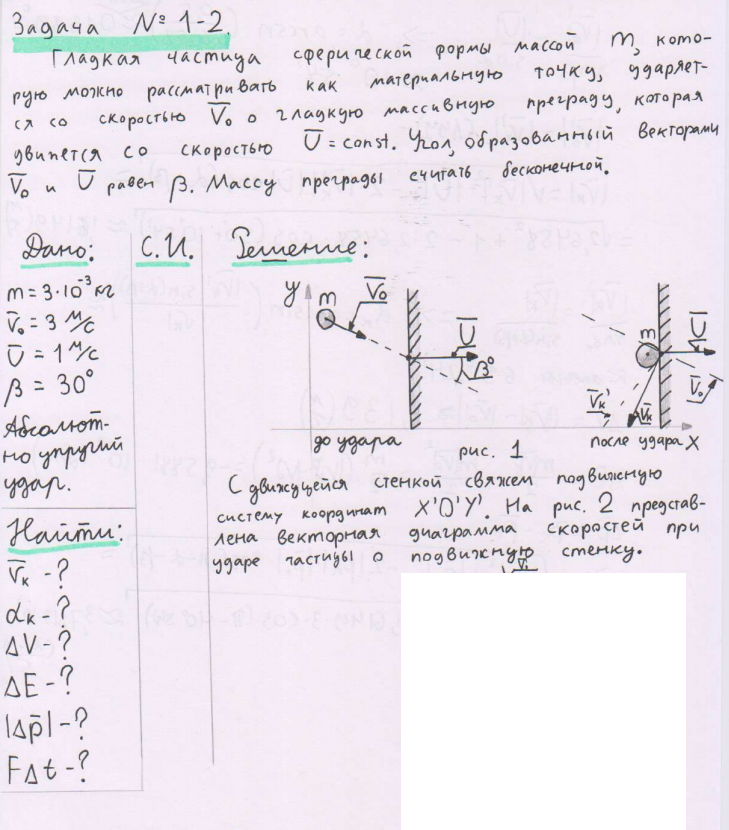 Задача № 1-2.
Гладкая частица сферической формы массой m, кото-
рую можно рассматривать как материальную точку, ударяет-
ся со скоростью V̅₀ о гладкую массивную преграду, которая
движется со скоростью U̅ = const. Угол, образованный векторами
V̅₀ и U̅ равен β. Массу преграды считать бесконечной.
Дано:
m = 3·10⁻³ кг
V̅₀ = 3 м/с
U̅ = 1 м/с
β = 30°
Абсолют-
но упругий
удар.
Найти:
V̅ₖ - ?
αₖ - ?
ΔV - ?
ΔE - ?
|Δp̅| - ?
FΔt - ?
С.И.
Решение:
y
m
V̅₀
U̅
β°
до удара
рис. 1
m
U̅
V̅₀
V̅ₖ'
V̅ₖ
после удара
X
С движущейся стенкой свяжем подвижную
систему координат X'O'Y'. На рис. 2 представ-
лена векторная диаграмма скоростей при
ударе частицы о подвижную стенку.